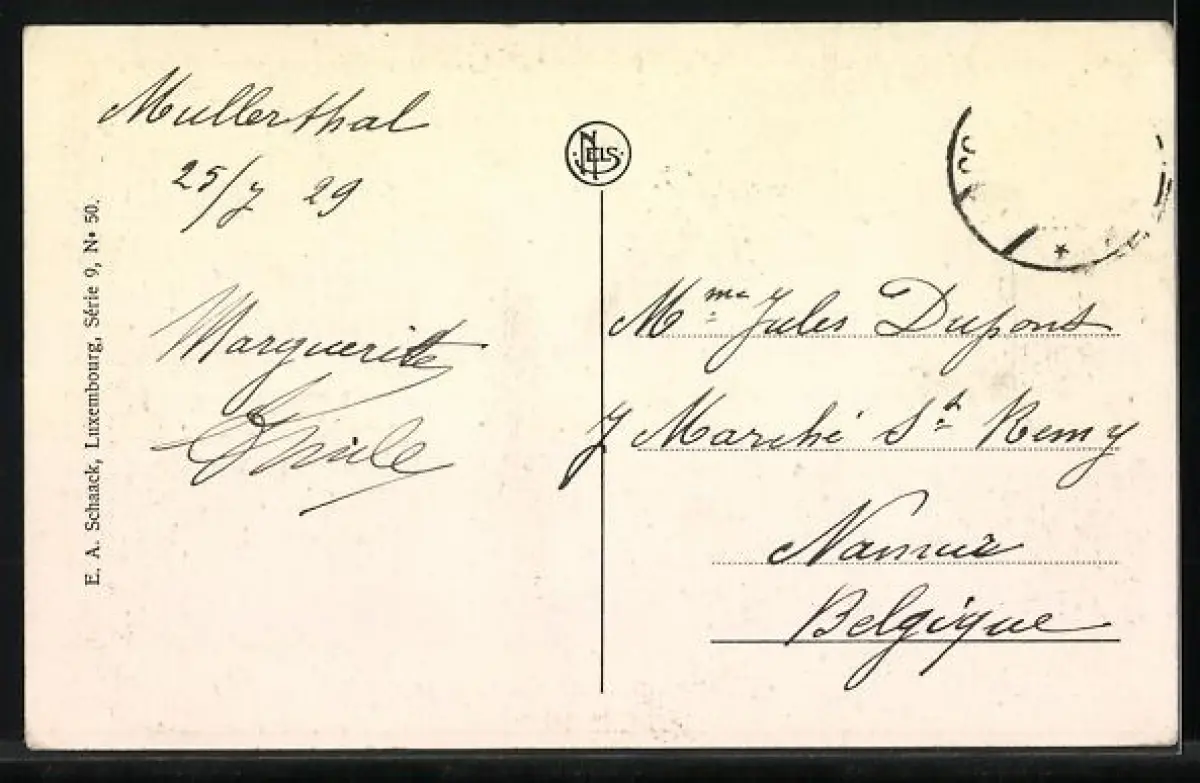 Mullerthal
25/7 29
Marguerite
Emile
E. A. Schaack, Luxembourg, Série 9, N• 50.
NELS
Mme Jules Dupont
7 Marché St Remy
Namur
Belgique